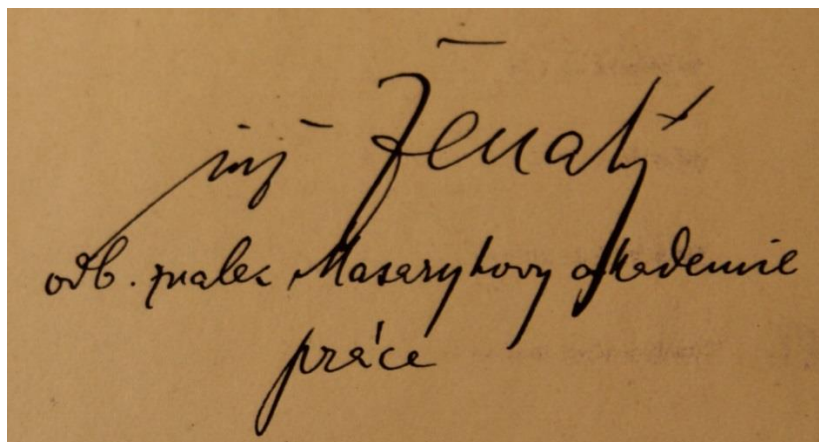 inž Ženatý
odb. znalec Masarykovy akademie
práce